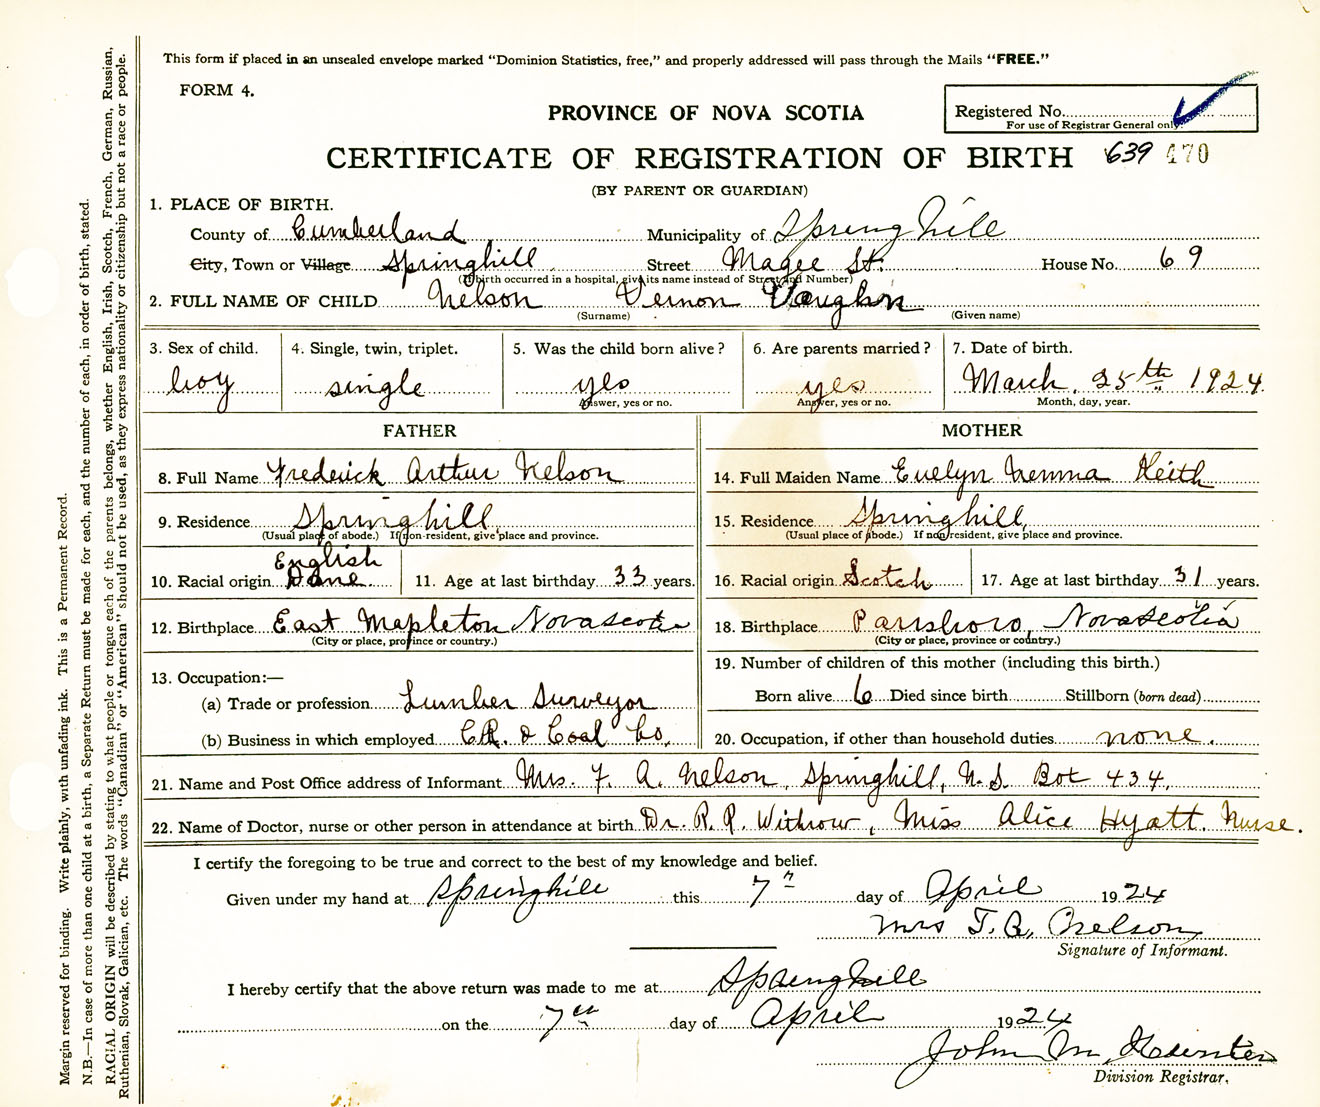 This form if placed in an unsealed envelope marked "Dominion Statistics, free," and properly addressed will pass through the Mails "FREE."
FORM 4.
PROVINCE OF NOVA SCOTIA
Registered No.
For use of Registrar General only.
CERTIFICATE OF REGISTRATION OF BIRTH 639 470
(BY PARENT OR GUARDIAN)
1. PLACE OF BIRTH.
County of Cumberland Municipality of Spring hill
City, Town or Village Springhill Street Magee St. House No. 69
(If birth occurred in a hospital, give its name instead of Street and Number)
2. FULL NAME OF CHILD Nelson Vernon Vaughn
(Surname) (Given name)
3. Sex of child. 4. Single, twin, triplet. 5. Was the child born alive? 6. Are parents married? 7. Date of birth.
boy single yes yes March, 25th 1924.
Answer, yes or no. Answer, yes or no. Month, day, year.
FATHER MOTHER
8. Full Name Frederick Arthur Nelson 14. Full Maiden Name Evelyn Nemma Keith
9. Residence Springhill, 15. Residence Springhill,
(Usual place of abode.) If non-resident, give place and province. (Usual place of abode.) If non-resident, give place and province.
English
10. Racial origin Dane 11. Age at last birthday 33 years. 16. Racial origin Scotch 17. Age at last birthday 31 years.
12. Birthplace East Mapleton Nova Scotia 18. Birthplace Parrsboro, Nova Scotia
(City or place, province or country.) (City or place, province or country.)
13. Occupation:— 19. Number of children of this mother (including this birth.)
(a) Trade or profession Lumber Surveyor Born alive 6 Died since birth Stillborn (born dead)
(b) Business in which employed C.R. & Coal Co. 20. Occupation, if other than household duties none.
21. Name and Post Office address of Informant Mrs. F. A. Nelson, Springhill, N.S. Box 434.
22. Name of Doctor, nurse or other person in attendance at birth Dr. R. P. Withrow, Miss Alice Hyatt. Nurse.
I certify the foregoing to be true and correct to the best of my knowledge and belief.
Given under my hand at Springhill this 7th day of April 1924
Mrs F. A. Nelson
Signature of Informant.
I hereby certify that the above return was made to me at Springhill
on the 7th day of April 1924
John M.
Division Registrar.
Margin reserved for binding. Write plainly, with unfading ink. This is a Permanent Record.
N.B.—In case of more than one child at a birth, a Separate Return must be made for each, and the number of each, in order of birth, stated.
RACIAL ORIGIN will be described by stating to what people or tongue each of the parents belongs, whether English, Irish, Scotch, French, German, Russian,
Ruthenian, Slovak, Galician, etc. The words "Canadian" or "American" should not be used, as they express nationality or citizenship but not a race or people.